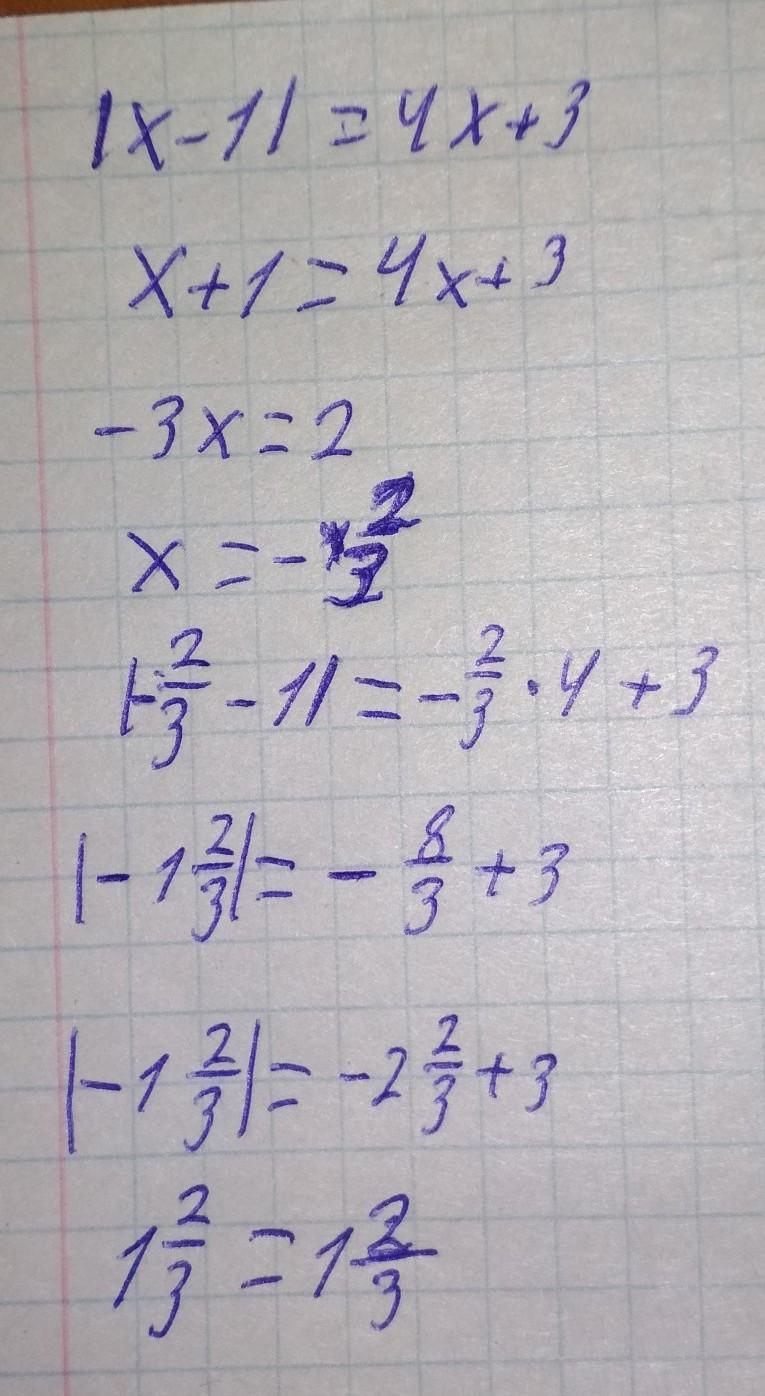 |x-1|=4x+3
x+1=4x+3
-3x=2
x=-2/3
|-2/3-1|=-2/3·4+3
|-1 2/3|=-8/3+3
|-1 2/3|=-2 2/3+3
1 2/3=1 2/3